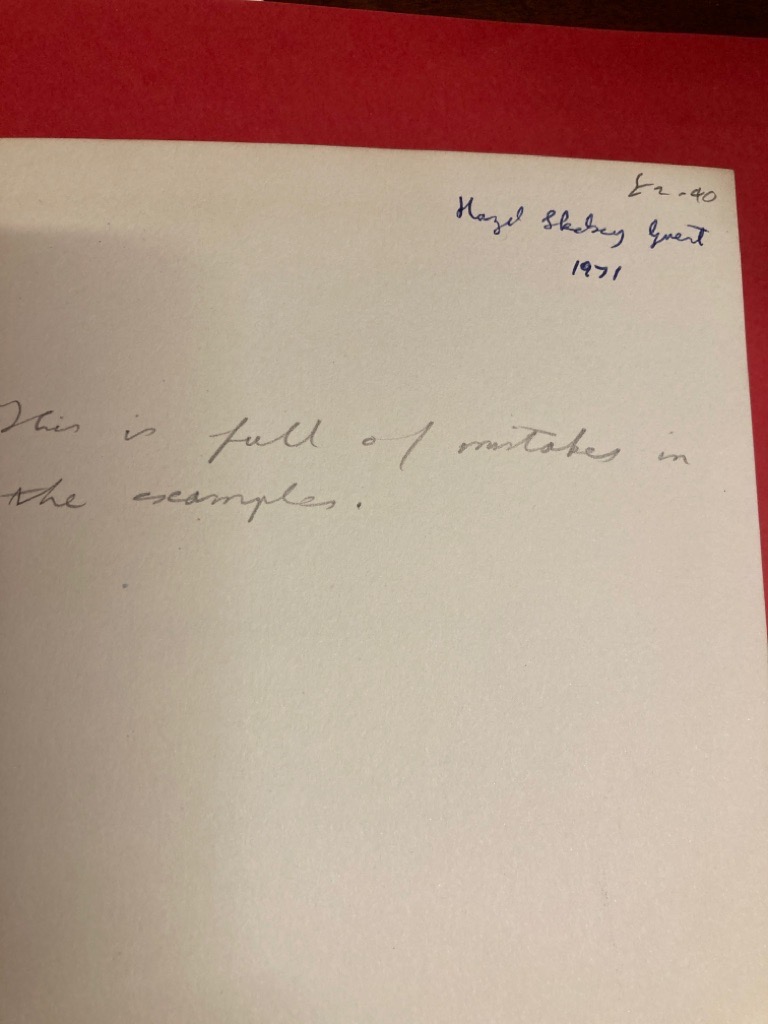 £2.40
Hazel Skelsey Guest
1971
This is full of mistakes in
the examples.